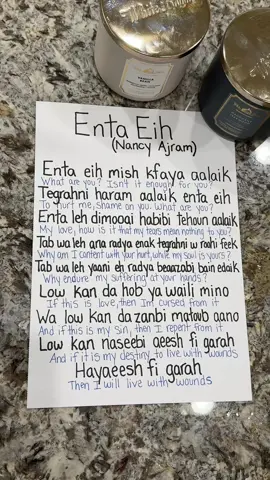 Enta Eih
(Nancy Ajram)
Enta eih mish kfaya aalaik
What are you? Isn't it enough for you?
Tegrahni haram aalaik enta eih
To hurt me, Shame on you. What are you?
Enta leh dimooai habibi tehoun aalaik
My love, how is it that my tears mean nothing to you?
Tab wa leh ana radya enak tegrahni w roohi feek
Why am I content with your hurt, while my soul is yours?
Tab wa leh yaani eh radya beaazabi bain edaik
Why endure my suffering at your hands?
Low kan da hobi ya waili mino
If this is love, then Im cursed from it
Wa low kan da zanbi matoub aano
And if this is my sin, then I repent from it
Low kan naseebi aeesh fi garah
And if it is my destiny to live with wounds
Hayaeesh fi garah
Then I will live with wounds